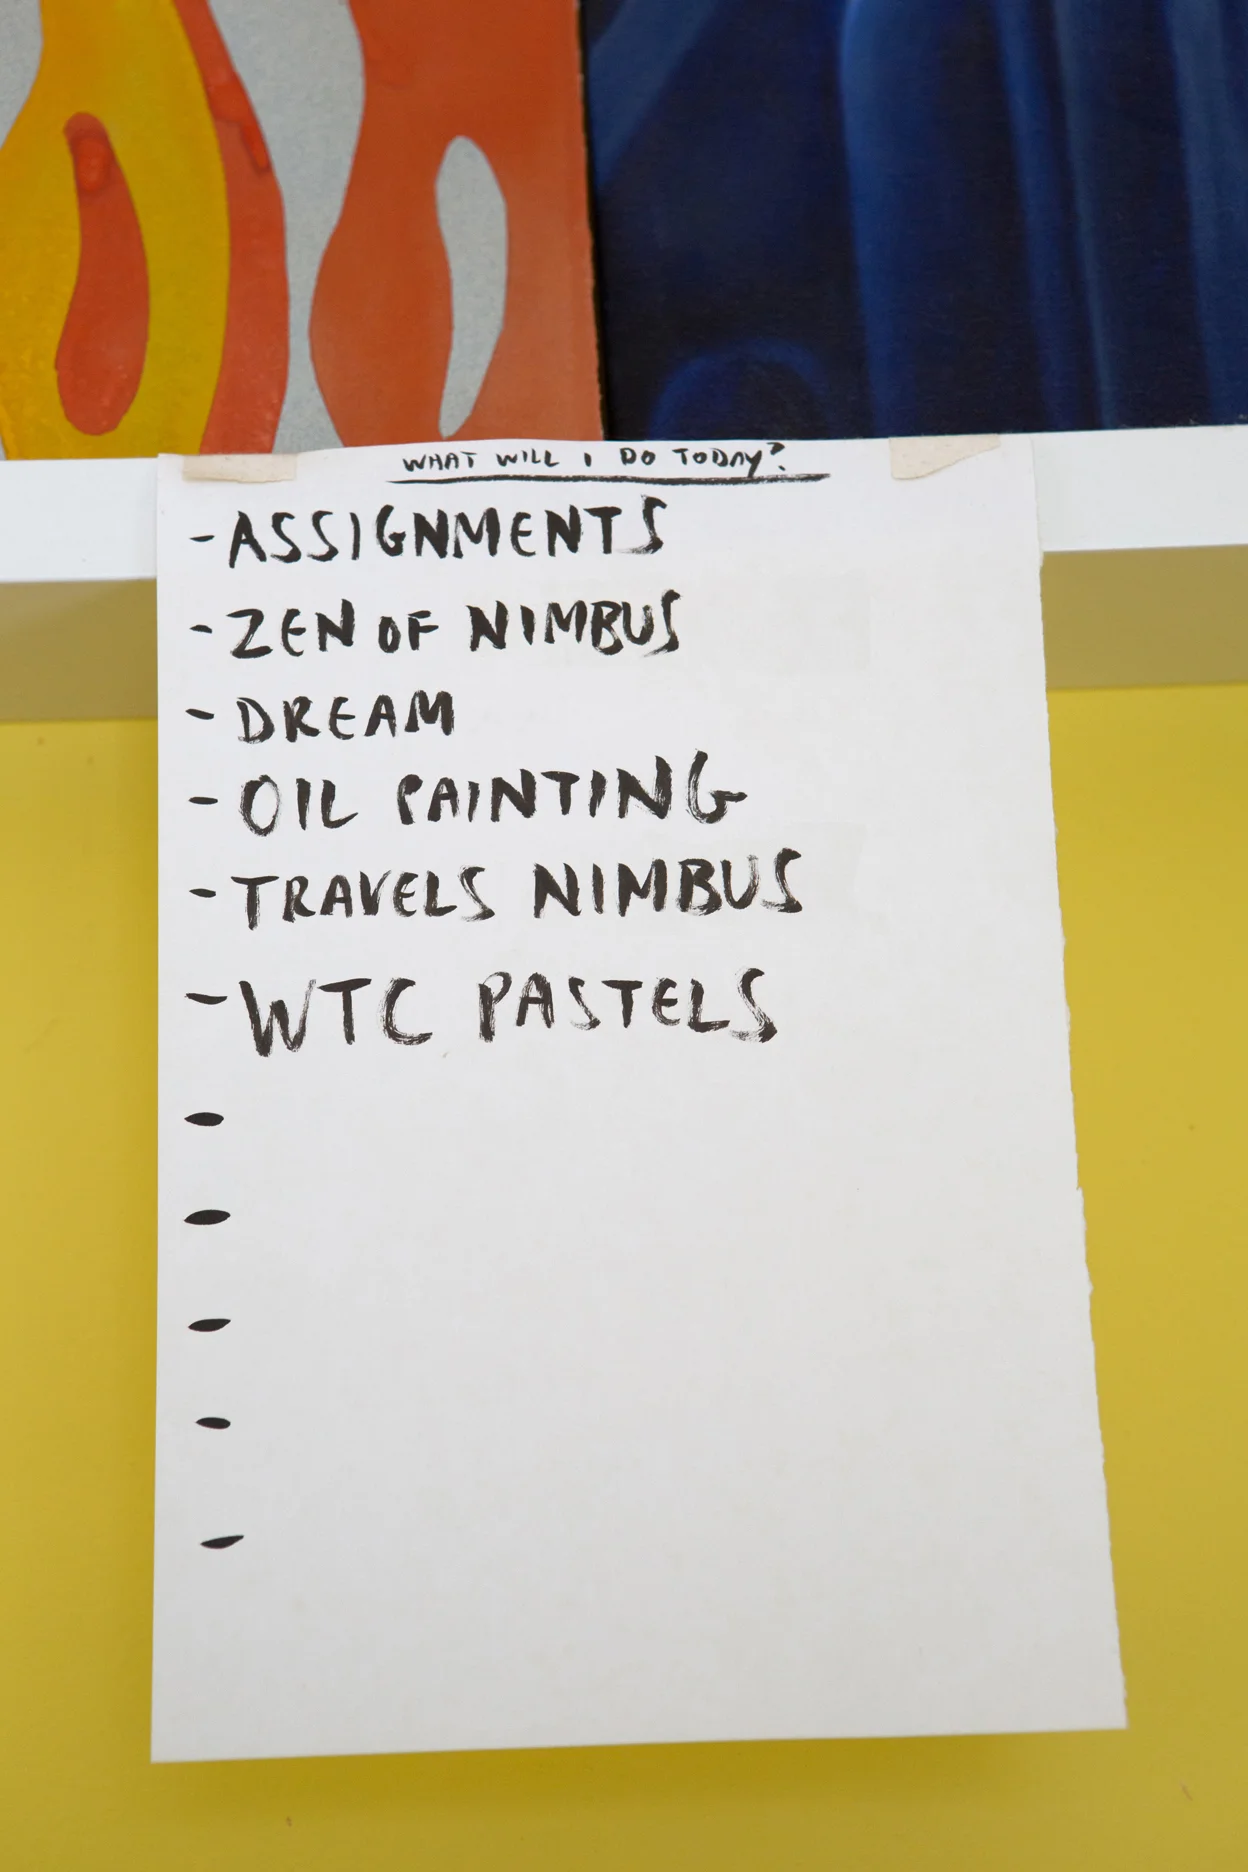 WHAT WILL I DO TODAY?
- ASSIGNMENTS
- ZEN OF NIMBUS
- DREAM
- OIL PAINTING
- TRAVELS NIMBUS
- WTC PASTELS
-
-
-
-
-